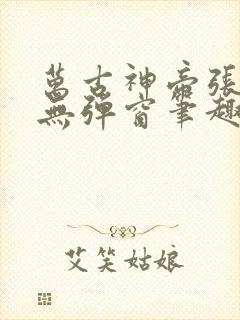 萬古神帝張
無彈窗筆趣
艾笑姑娘